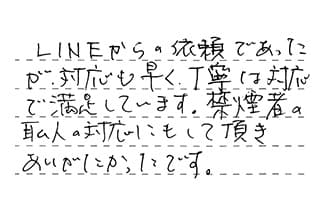 LINEからの依頼であった
が、対応も早く、丁寧な対応
で満足しています。禁煙者の
人の対応にもして頂き
ありがたかったです。